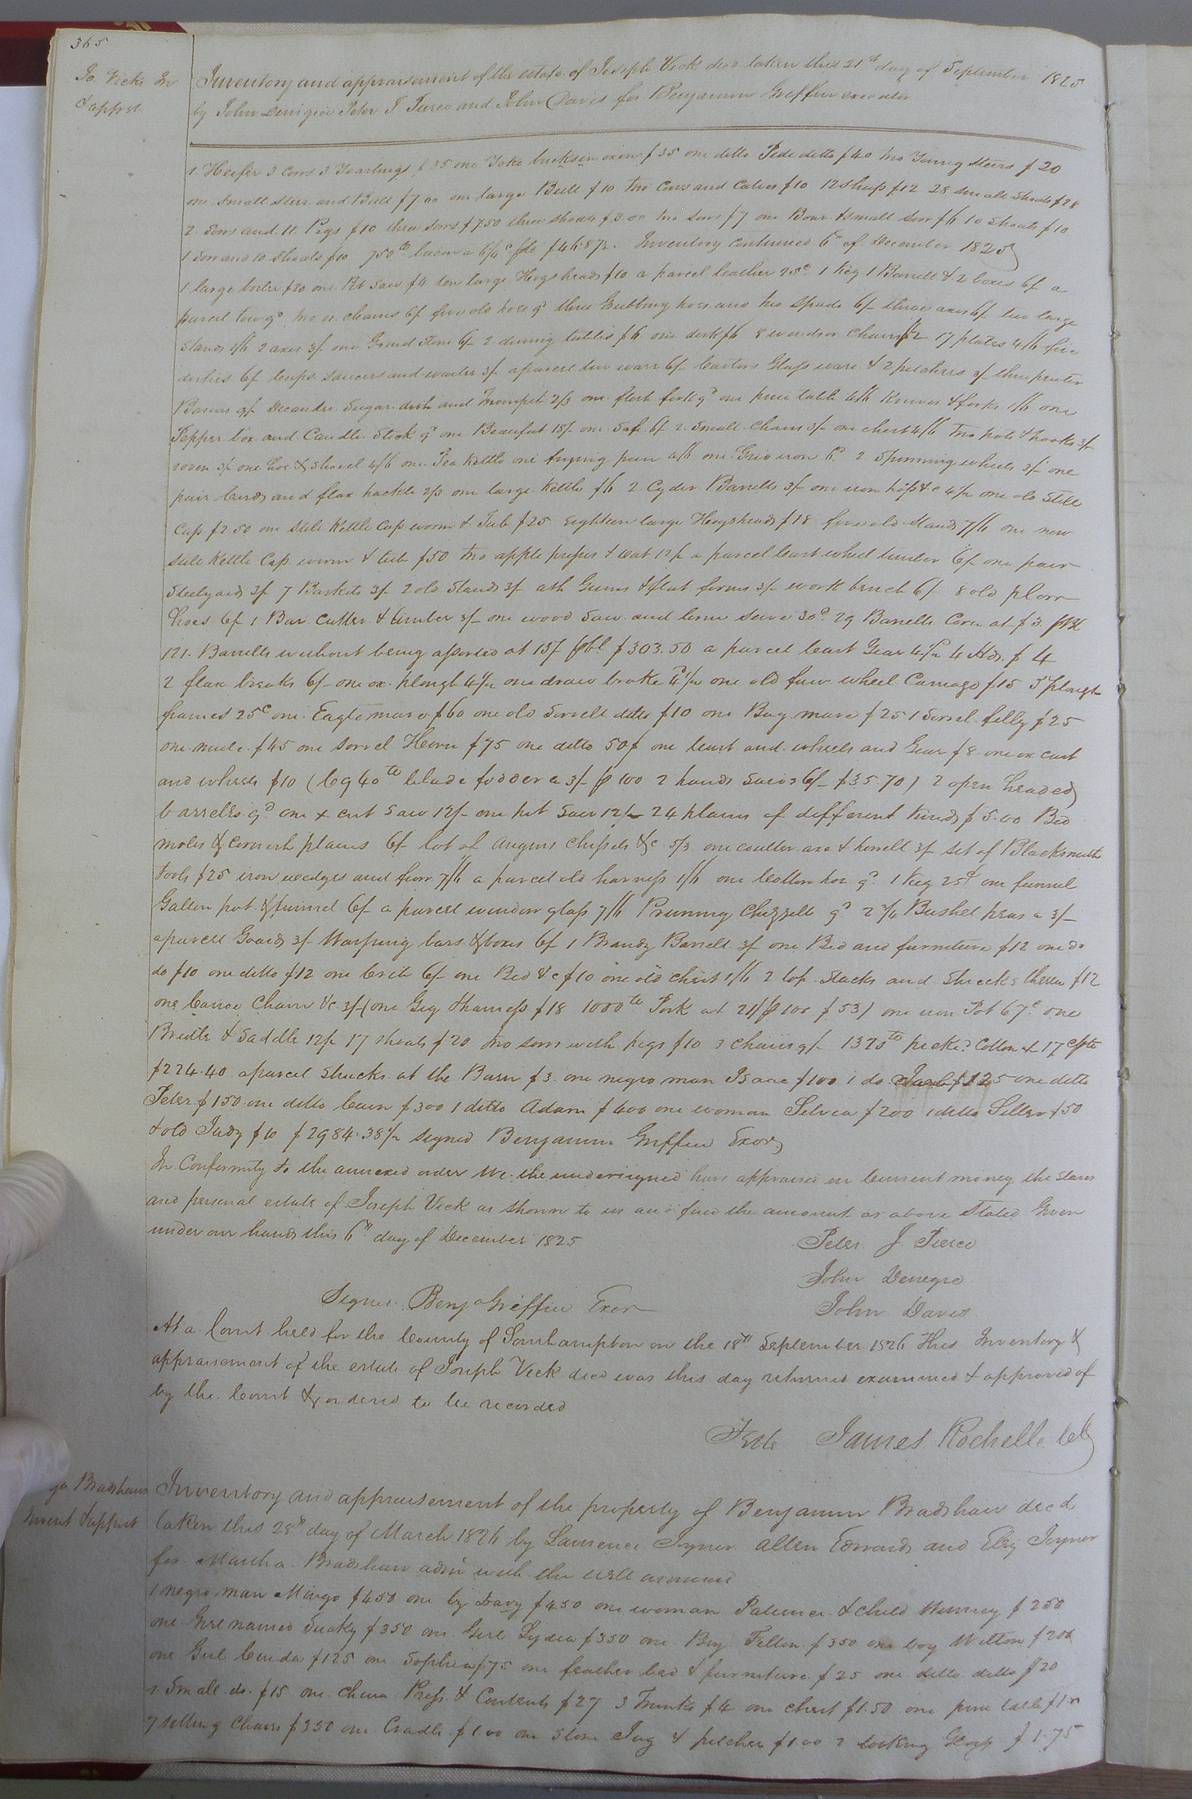 365
Jo. Vicks In
& apprst.
Inventory and appraisement of the estate of Joseph Vick decd taken this 21st day of September 1825
by John Denigre Peter J Pierce and John Davis for Benjamin Griffin executor
1 Heifer 3 Cows 3 Yearlings $35 one Yoke oxen $35 one ditto Pide ditto $40 two Young Steers $20
one small steer and Bull $7.00 one large Bull $10 two Cows and Calves $10 12 sheep $12 28 small Shoats $28
2 Sows and 11 Pigs $10 three sows $7.50 three shoats $3.00 two sows $7 one Boar & small sow $6 10 Shoats $10
1 Sow and 10 Shoats $10 750 lb bacon a 6¼ c $46.87½. Inventory Continued 6th of December 1825
1 large $20 one Pit Saw $4 ten large Hogsheads $10 a parcel leather 25c 1 Keg 1 Barrell & 2 boxes 6/ a
parcel tow 9d two ox chains 6/ five old hoes 9d three Grubbing hoes and two Spade 6/ three axes 6/ two large
Stands 1/6 2 axes 3/ one Grind Stone 6/ 2 dining tables $6 one desk $6 8 windsor Chairs $2 17 plates 4/6 five
dishes 6/ Cups Saucers and waiter 3/ a parcel tin ware 6/ Castors Glass ware & 2 pitchers 3/ three pewter
Basins 9/ Decanter Sugar dish and Trumpet 2/3 one flesh fork 9d one pine table 4/6 Knives & forks 1/6 one
Pepper box and Candle Stick 9d one Beaufat 18/ one Safe 6/ 2 Small Chairs 3/ one chest 4/6 two pots & hooks 3/
oven 3/ one hoe & Shovel 4/6 one Tea Kettle one frying pan 4/6 one Grid iron 6d 2 Spinning wheels 3/ one
pair Cards and flax hackle 2/3 one large Kettle $6 2 Cyder Barrells 3/ one iron 4/6 one old Still
Cap $2.50 one Still Kettle Cap worm & Tub $25 Eighteen large Hogsheads $18 five old Stands 7/6 one new
Still Kettle Cap worm & tub $50 two apple presses & 12/ a parcel Cart wheel timber 6/ one pair
Steelyards 3/ 7 Baskets 3/ 2 old Stands 3/ ash Gums & 3/ work bench 6/ 8 old plow
hoes 6/ 1 Bar Cutter & timber 3/ one wood Saw and lime seive 30c 29 Barrells Corn at $3.
121 Barrells without being assorted at 15/ pbl $303.50 a parcel Cart Gear 4/6 4 Hds $4
2 flax breaks 6/ one ox plough 4/6 one draw broke 4/6 one old four wheel Carriage $15 5 plough
frames 25c one Eagle mare $60 one old Sorrell ditto $10 one Bay mare $25 1 Sorrel filly $25
one mule $45 one sorrel Horse $75 one ditto 50$ one Cart and wheels and Gear $8 one ox cart
and wheels $10 ( 40 lb blade fodder a 3/ p 100 2 hand Saws 6/ $35.70) 2 open headed
barrells 9d one x cut Saw 12/ one pit Saw 12/ 24 plains of different Kinds $5.00 Bed
moles & Cornish plains 6/ lot of Augurs Chisels &c 5/3 one coulter axe & howell 3/ set of Blacksmith
tools $25 iron wedges and frow 7/6 a parcel old harness 1/6 one Cotton hoe 9d 1 Keg 25c one funnel
Gallon pot & funnel 6/ a parcel window glass 7/6 Pruning Chizzell 9d 2¼ Bushel peas a 3/
a parcel Goards 3/ Warping bars & boxes 6/ 1 Brandy Barrell 3/ one Bed and furniture $12 one do
do $10 one ditto $12 one Crib 6/ one Bed &c $10 one old chest 1/6 2 top stacks and Shucks there $12
one Canoe Chain &c 3/ (one Gig & harness $18 1000 lb Pork at 21/ p 100 $53) one iron Pot 67c one
Bridle & Saddle 12/ 17 shoats $20 two sows with pigs $10 3 chairs 9/ 1320 lb pick'd Cotton at 17 c
$224.40 a parcel Shucks at the Barn $3 one negro man Isaac $100 1 do Jacob $125 one ditto
Peter $150 one ditto Cain $300 1 ditto Adam $400 one woman Selvia $200 1 ditto Siller $50
& old Judy $10 $2984.38½ Signed Benjamin Griffin Exor
In Conformity to the annexed order We the undersigned have appraised in Current money the slaves
and personal estate of Joseph Vick as shown to us and find the amount as above Stated Given
under our hands this 6th day of December 1825
Peter J Pierce
John Denegre
John Davis
Signed Benj Griffin Exor
At a Court held for the County of Southampton on the 18th September 1826 This Inventory &
appraisement of the estate of Joseph Vick decd was this day returned examined & approved of
by the Court & ordered to be recorded
Teste James Rochelle Clk
Bradshaws
Invent & apprst
Inventory and appraisement of the property of Benjamin Bradshaw decd
taken this 25th day of March 1826 by Lawrence Joyner Allen Edwards and Eley Joyner
for Martha Bradshaw admr with the will annexed
1 negro man Mingo $450 one boy Davy $450 one woman Patience & child $250
one Girl named Sucky $350 one Girl Lydia $350 one Boy $350 one boy Wilson $200
one Girl Cinda $125 one Sophia $75 one feather bed & furniture $25 one ditto ditto $20
1 Small do. $15 one China Press & Contents $27 3 Trunks $4 one chest $1.50 one pine table $1.
7 sitting Chairs $3.50 one Cradle $1.00 one Stone Jug & pitcher $1.00 2 looking Glass $1.75